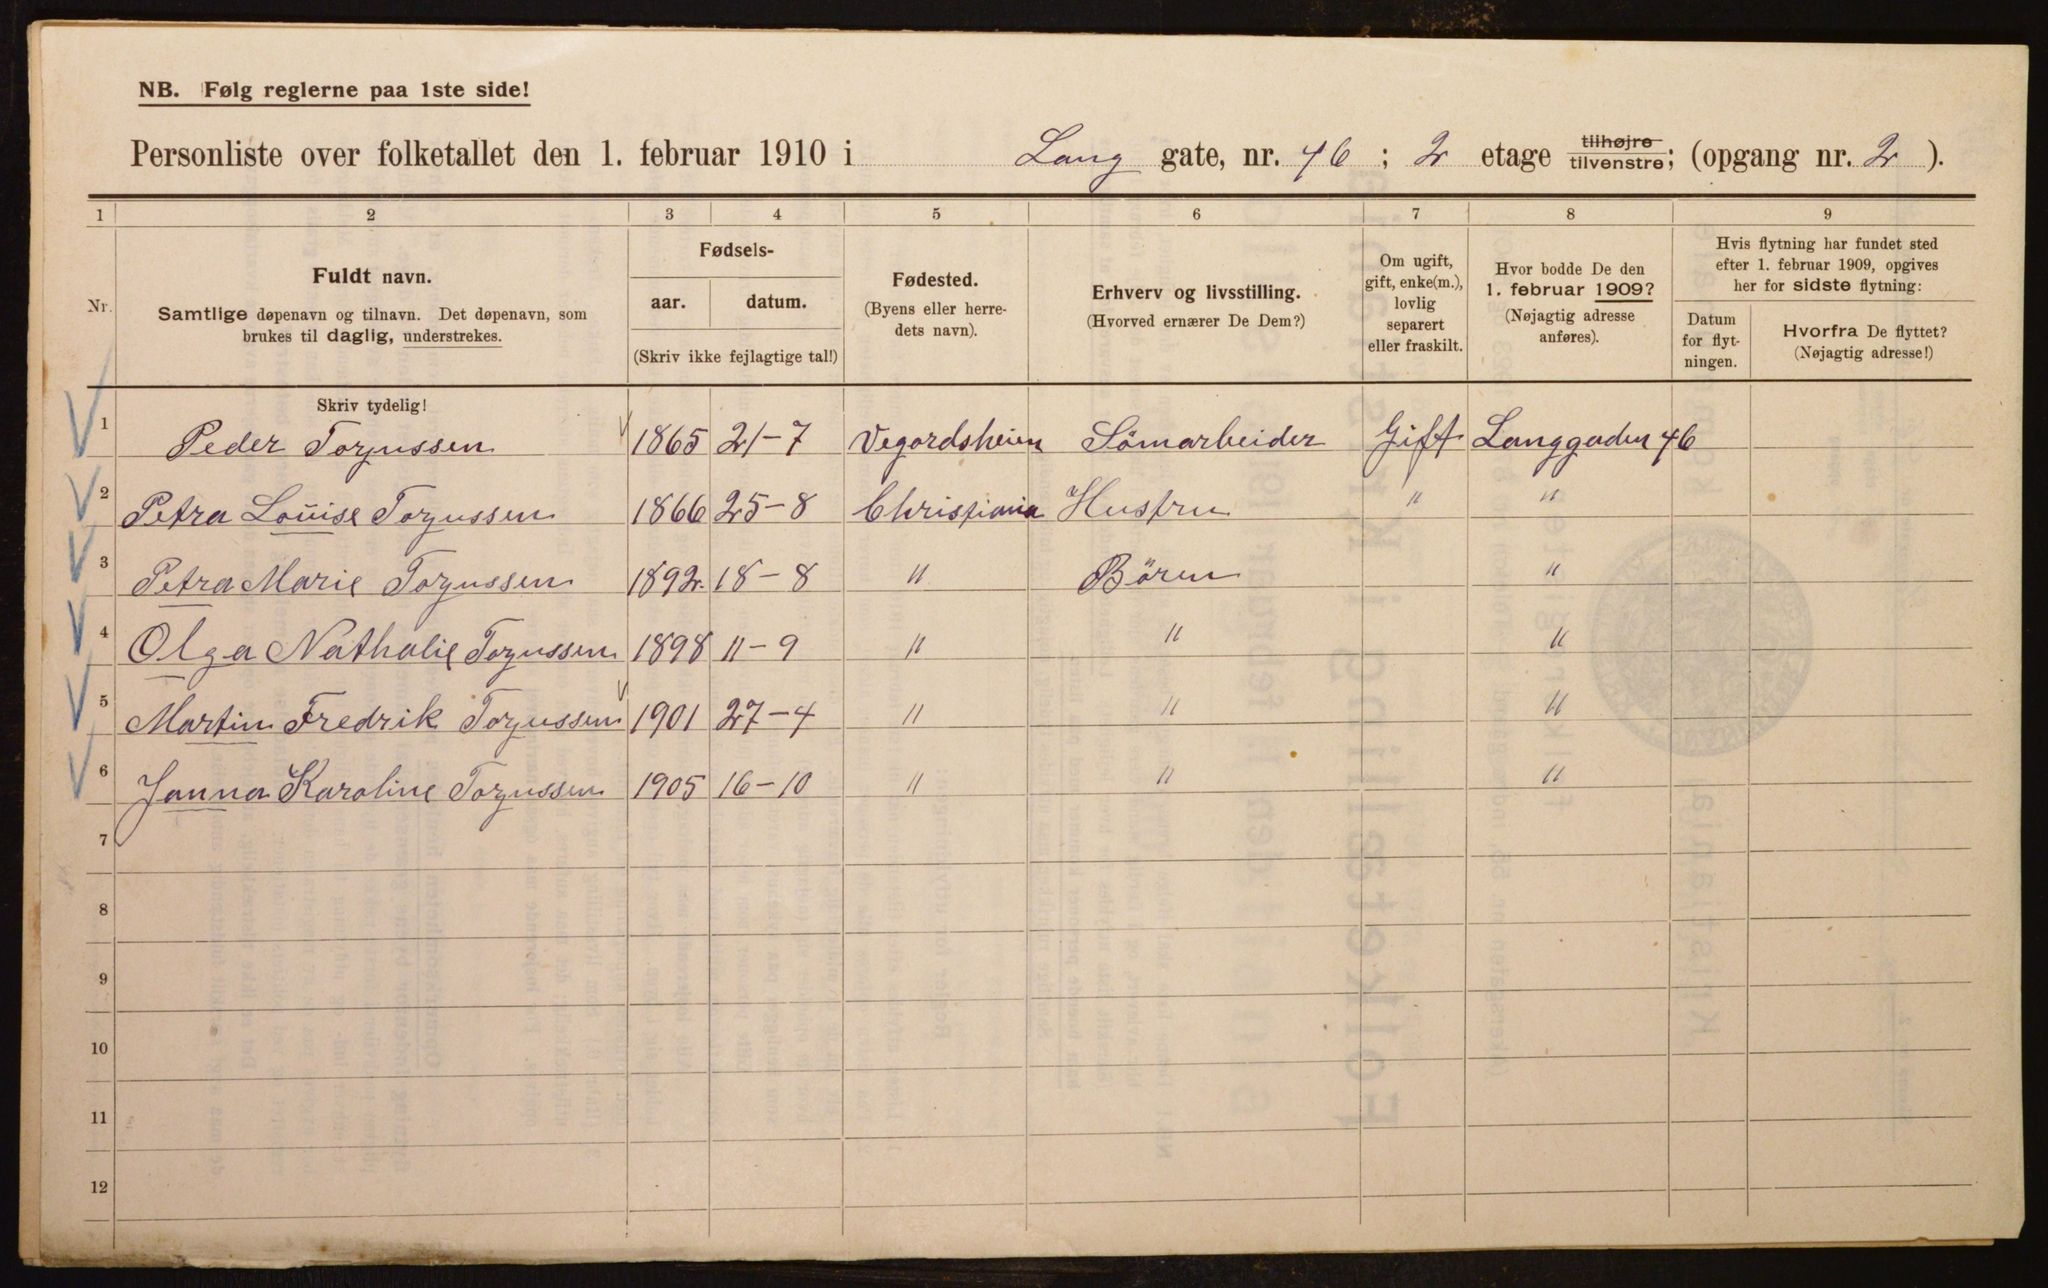 NB. Følg reglerne paa 1ste side!
Personliste over folketallet den 1. februar 1910 i Lang gate, nr. 46 ; 2 etage tilhøjre tilvenstre; (opgang nr. 2 ).
1 2 3 4 5 6 7 8 9
Nr.
Fuldt navn.
Samtlige døpenavn og tilnavn. Det døpenavn, som
brukes til daglig, understrekes.
Skriv tydelig!
Fødsels-
aar. datum.
(Skriv ikke fejlagtige tal!)
Fødested.
(Byens eller herre-
dets navn).
Erhverv og livsstilling.
(Hvorved ernærer De Dem?)
Om ugift,
gift, enke(m.),
lovlig
separert
eller fraskilt.
Hvor bodde De den
1. februar 1909?
(Nøjagtig adresse
anføres).
Hvis flytning har fundet sted
efter 1. februar 1909, opgives
her for sidste flytning:
Datum
for flyt-
ningen.
Hvorfra De flyttet?
(Nøjagtig adresse!)
1 Peder Torjussen 1865 21-7 Vegordsheien Sömarbeider Gift Langgaden 46
2 Petra Louise Torjussen 1866 25-8 Christiania Hustru " "
3 Petra Marie Torjussen 1892 18-8 " Bören "
4 Olga Nathalie Torjussen 1898 11-9 " " "
5 Martin Fredrik Torjussen 1901 27-4 " " "
6 Janna Karoline Torjussen 1905 16-10 " " "
7
8
9
10
11
12